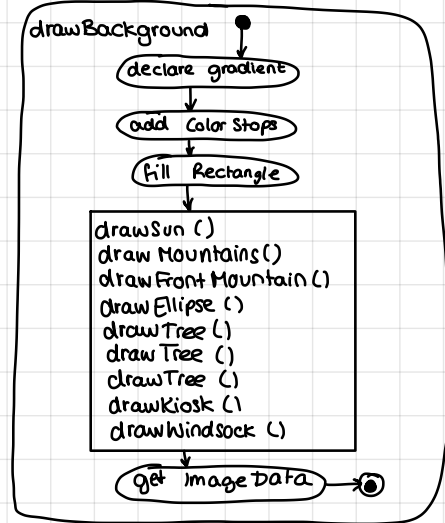 drawBackground
declare gradient
add Color Stops
fill Rectangle
drawSun ()
draw Mountains()
drawFrontMountain ()
drawEllipse ()
drawTree ()
drawTree ()
drawTree ()
drawKiosk ()
drawWindsock ()
get Image Data